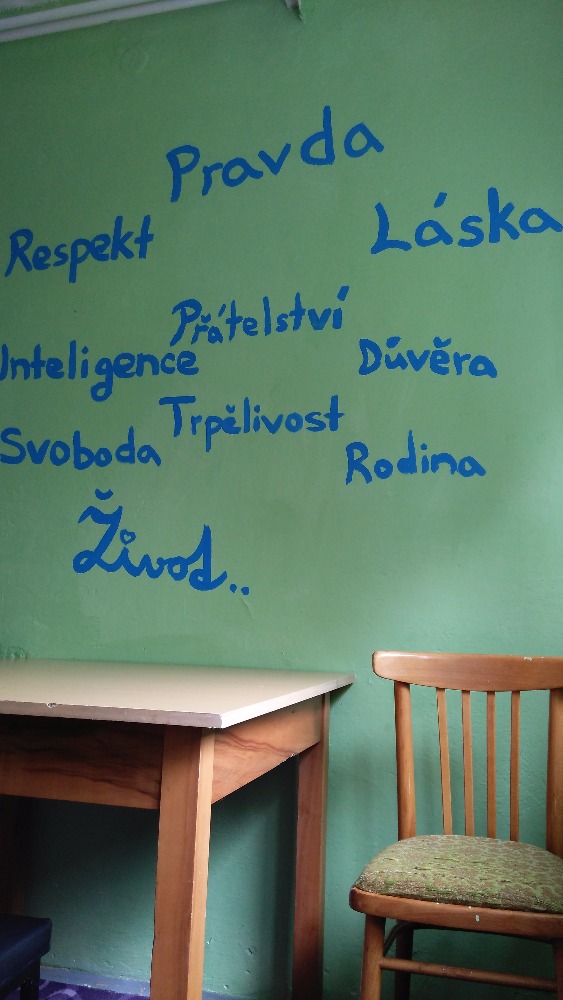 Pravda
Respekt
Láska
Přátelství
Inteligence
Důvěra
Trpělivost
Svoboda
Rodina
Život..